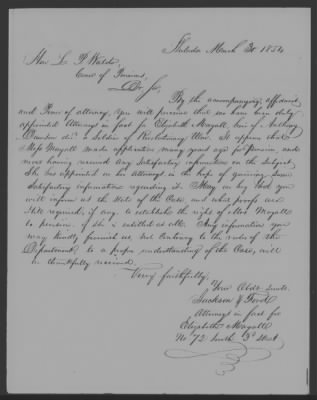 March 30 1854
Hon. L. P. Waldo
Com. of Pensions,
Dr Sir,
By the accompanying affidavit
and Power of attorney, You will perceive that we have been duly
appointed Attorneys in fact for Elizabeth Magall, heir of
decd. a Soldier of Revolutionary War. It appears that
Mrs Magall made application many years ago for pension, and
never having received any Satisfactory information on the Subject,
She has appointed us her Attorneys in the hope of gaining some
Satisfactory information regarding it. May we beg that you
will inform us the State of the Case, and what proofs are
Still required, if any, to establish the right of Mrs Magall
to pension, if she is entitled at all. Any information you
may kindly furnish us, not Contrary to the rules of the
Department, to a proper understanding of the Case, will
be thankfully received.
Very faithfully,
Your Obdt. Servts.
Jackson &
Attorneys in fact for
Elizabeth Magall
No 72 South 3d Street